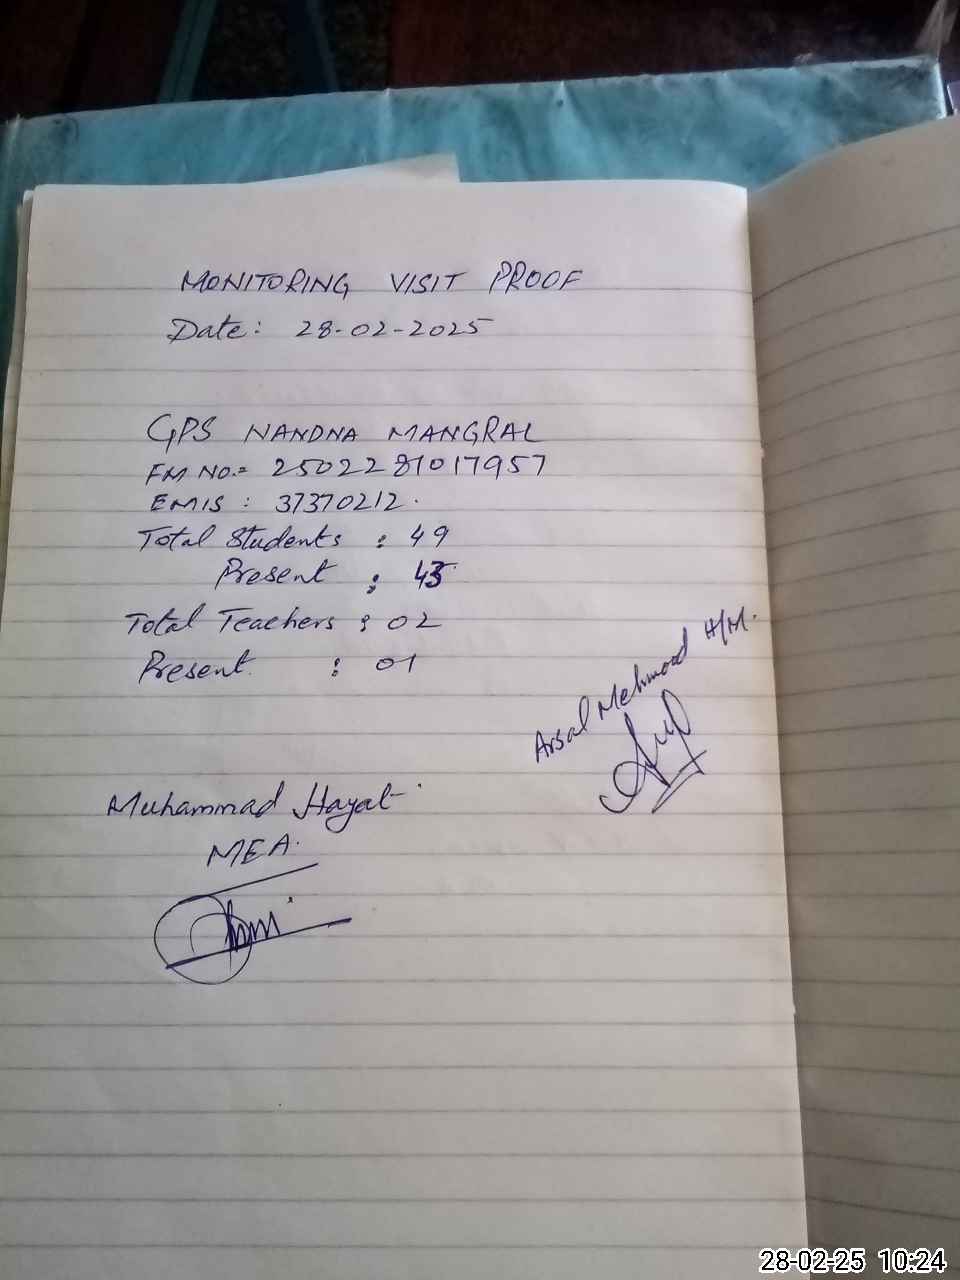 MONITORING VISIT PROOF
Date: 28-02-2025
GPS NANDNA MANGRAL
FM NO.= 2502281017957
EMIS : 37370212.
Total Students : 49
Present : 45
Total Teachers : 02
Present. : 01
Arsal Mehmood H/M.
Muhammad Hayat
MEA.
28-02-25 10:24